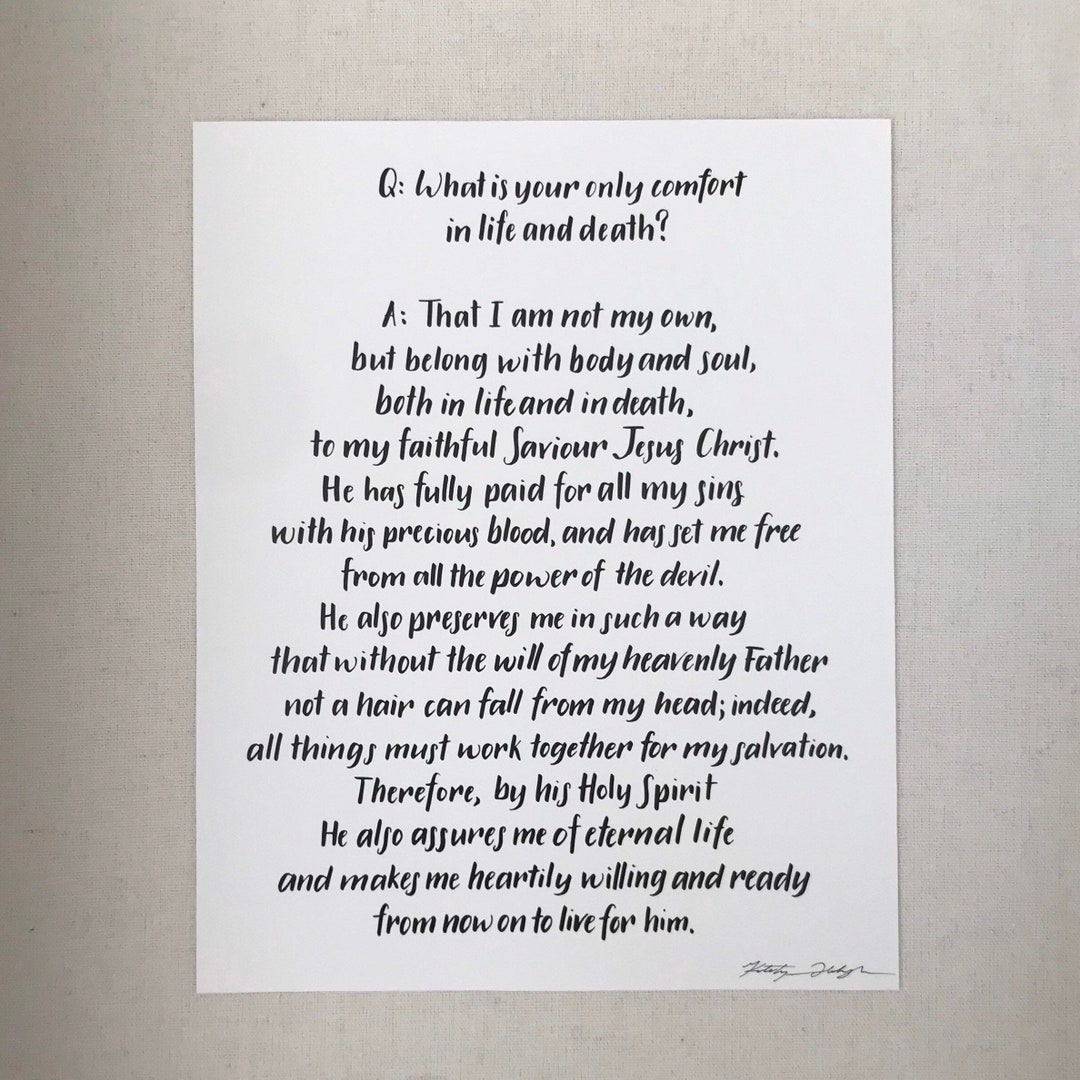 Q: What is your only comfort
in life and death?
A: That I am not my own,
but belong with body and soul,
both in life and in death,
to my faithful Saviour Jesus Christ.
He has fully paid for all my sins
with his precious blood, and has set me free
from all the power of the devil.
He also preserves me in such a way
that without the will of my heavenly Father
not a hair can fall from my head; indeed,
all things must work together for my salvation.
Therefore, by his Holy Spirit
He also assures me of eternal life
and makes me heartily willing and ready
from now on to live for him.